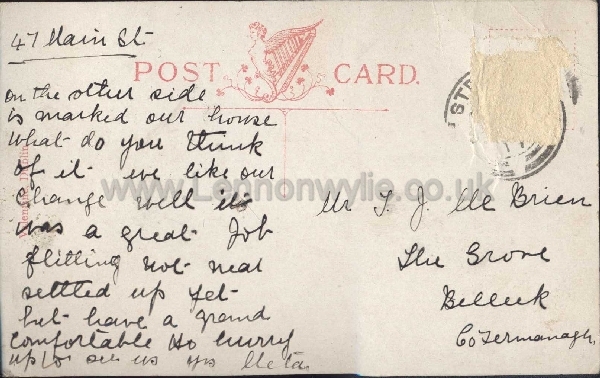 47 Main St
POST CARD.
on the other side
is marked our house
what do you think
of it we like our
change well it
was a great Job
flitting not near
settled up yet
but have a grand
comfortable Ho hurry
up to see us yrs Meta
Mr T. J. Mc Brien
The Grove
Belleek
Co Fermanagh.
www.Lennonwylie.co.uk